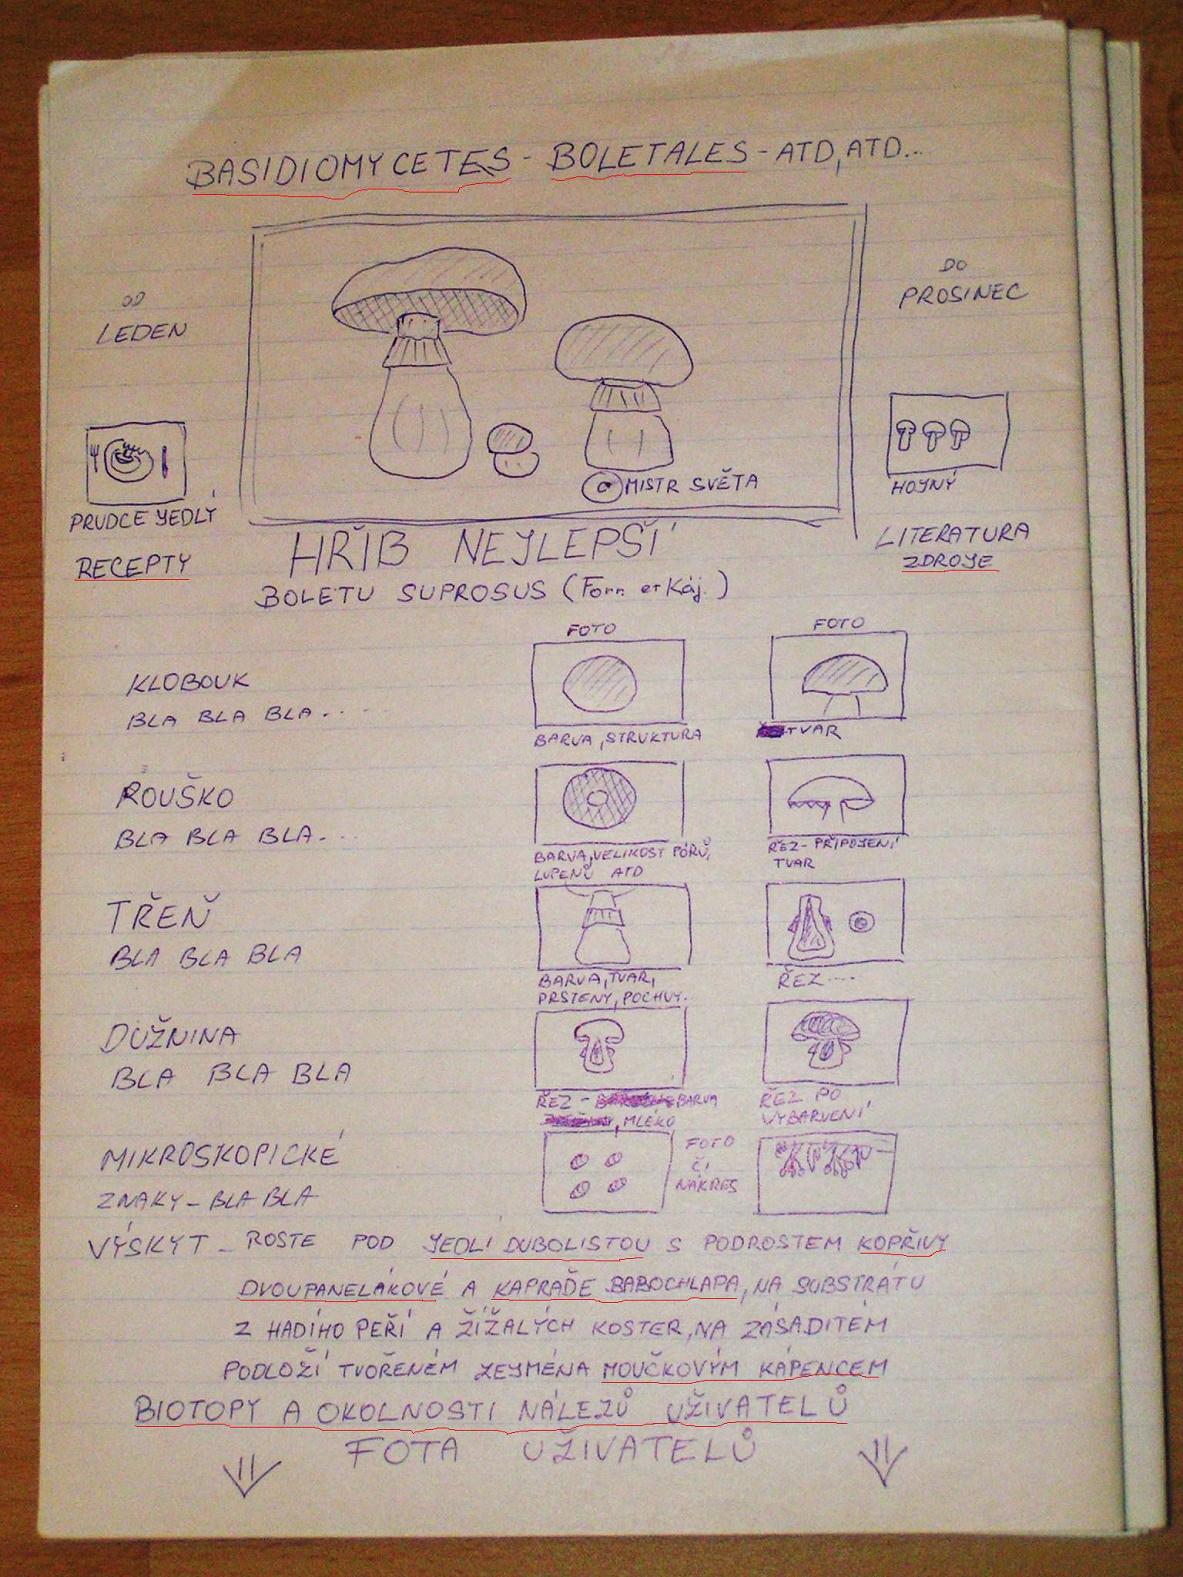 BASIDIOMYCETES - BOLETALES - ATD, ATD...
OD
LEDEN
DO
PROSINEC
MISTR SVĚTA
PRUDCE JEDLÝ
HOJNÝ
RECEPTY
LITERATURA
ZDROJE
HŘIB NEJLEPŠÍ
BOLETU SUPROSUS (Forr. et Káj.)
FOTO FOTO
KLOBOUK
BLA BLA BLA...
BARVA, STRUKTURA
TVAR
ROUŠKO
BLA BLA BLA...
BARVA, VELIKOST PÓRŮ,
LUPENŮ ATD
ŘEZ - PŘIPOJENÍ
TVAR
TŘEŇ
BLA BLA BLA
BARVA, TVAR,
PRSTENY, POCHVY.
ŘEZ ....
DUŽNINA
BLA BLA BLA
ŘEZ - BARVA
, MLÉKO
ŘEZ PO
VYBARVENÍ
MIKROSKOPICKÉ
ZNAKY - BLA BLA
FOTO
ČI
NÁKRES
VÝSKYT - ROSTE POD JEDLÍ DUBOLISTOU S PODROSTEM KOPŘIVY
DVOUPANELÁKOVÉ A KAPRAĎE BABOCHLAPA, NA SUBSTRÁTU
Z HADÍHO PEŘÍ A ŽÍŽALÝCH KOSTER, NA ZÁSADITÉM
PODLOŽÍ TVOŘENÉM ZEJMÉNA MOUČKOVÝM KÁPENCEM
BIOTOPY A OKOLNOSTI NÁLEZŮ UŽIVATELŮ
FOTA UŽIVATELŮ